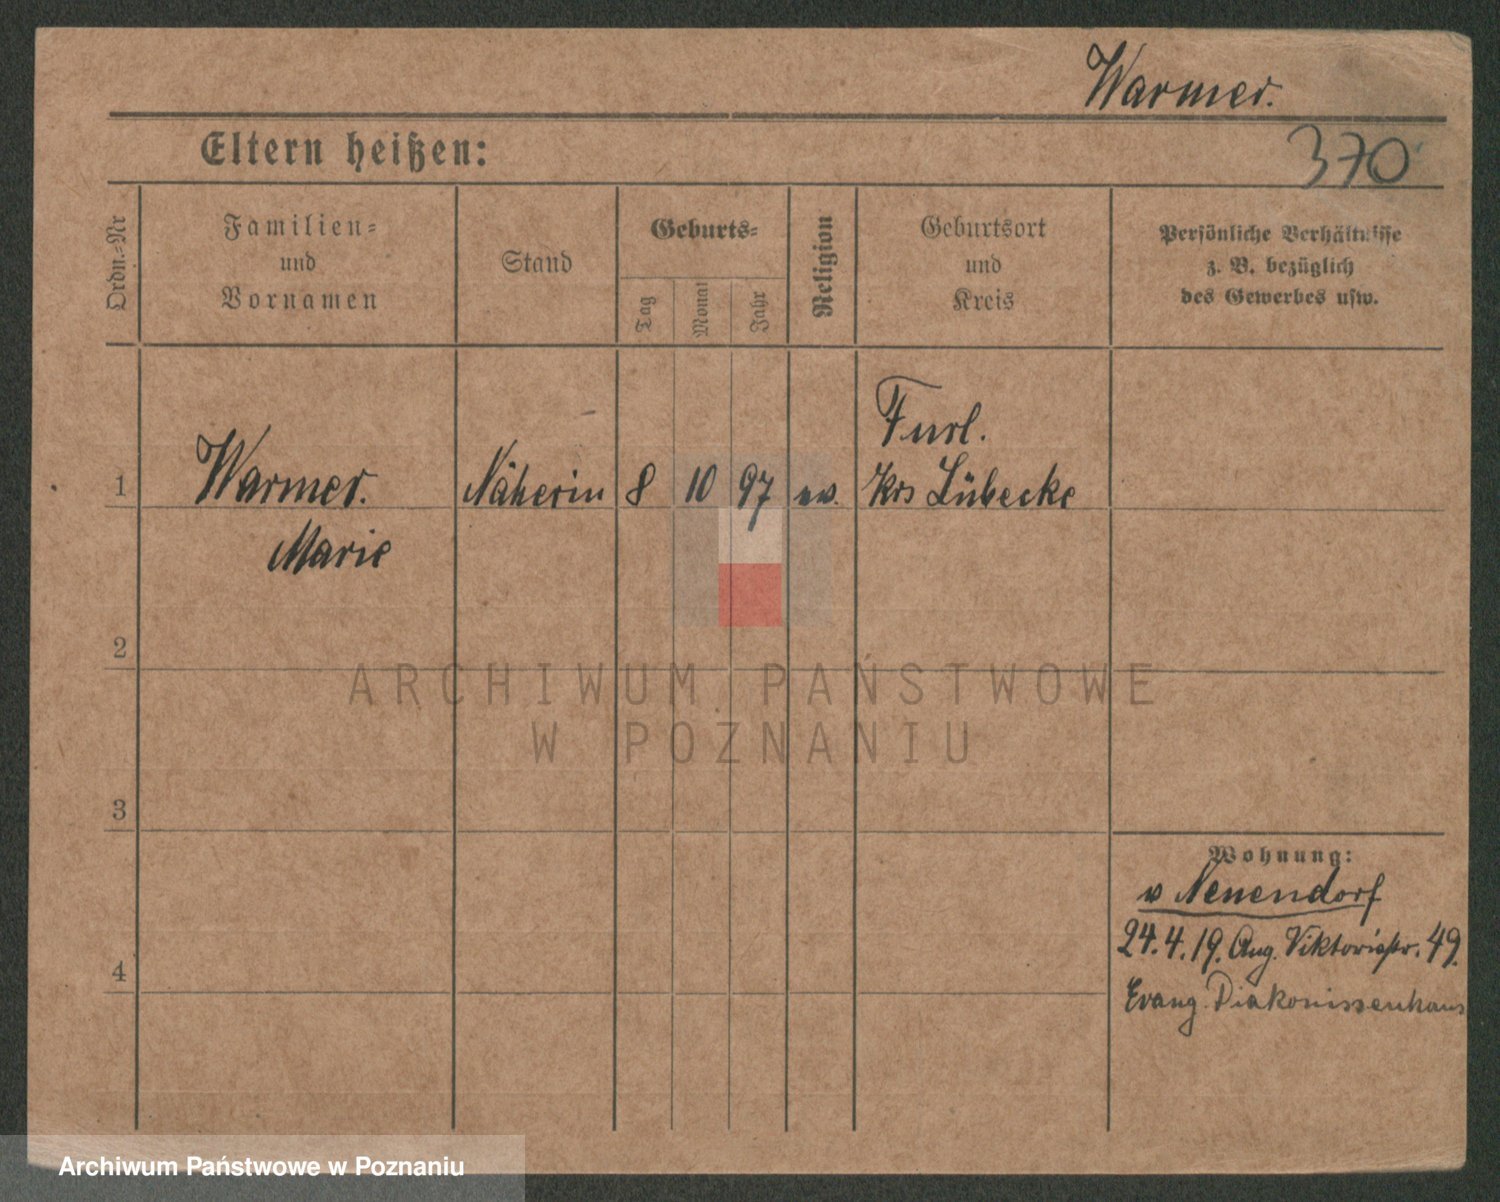 Warmer.
370
Eltern heißen:
Ordn.-Nr
Familien-
und
Vornamen
Stand
Geburts-
Tag
Monat
Jahr
Religion
Geburtsort
und
Kreis
Persönliche Verhältnisse
z. B. bezüglich
des Gewerbes usw.
Furl.
1 Warmer. Näherin 8 10 97 ev. Krs Lübecke
Marie
2
ARCHIWUM PAŃSTWOWE
W POZNANIU
3
Wohnung:
v Neuendorf
24.4.19. Aug. Viktoriastr. 49.
4
Evang. Diakonissenhaus
Archiwum Państwowe w Poznaniu